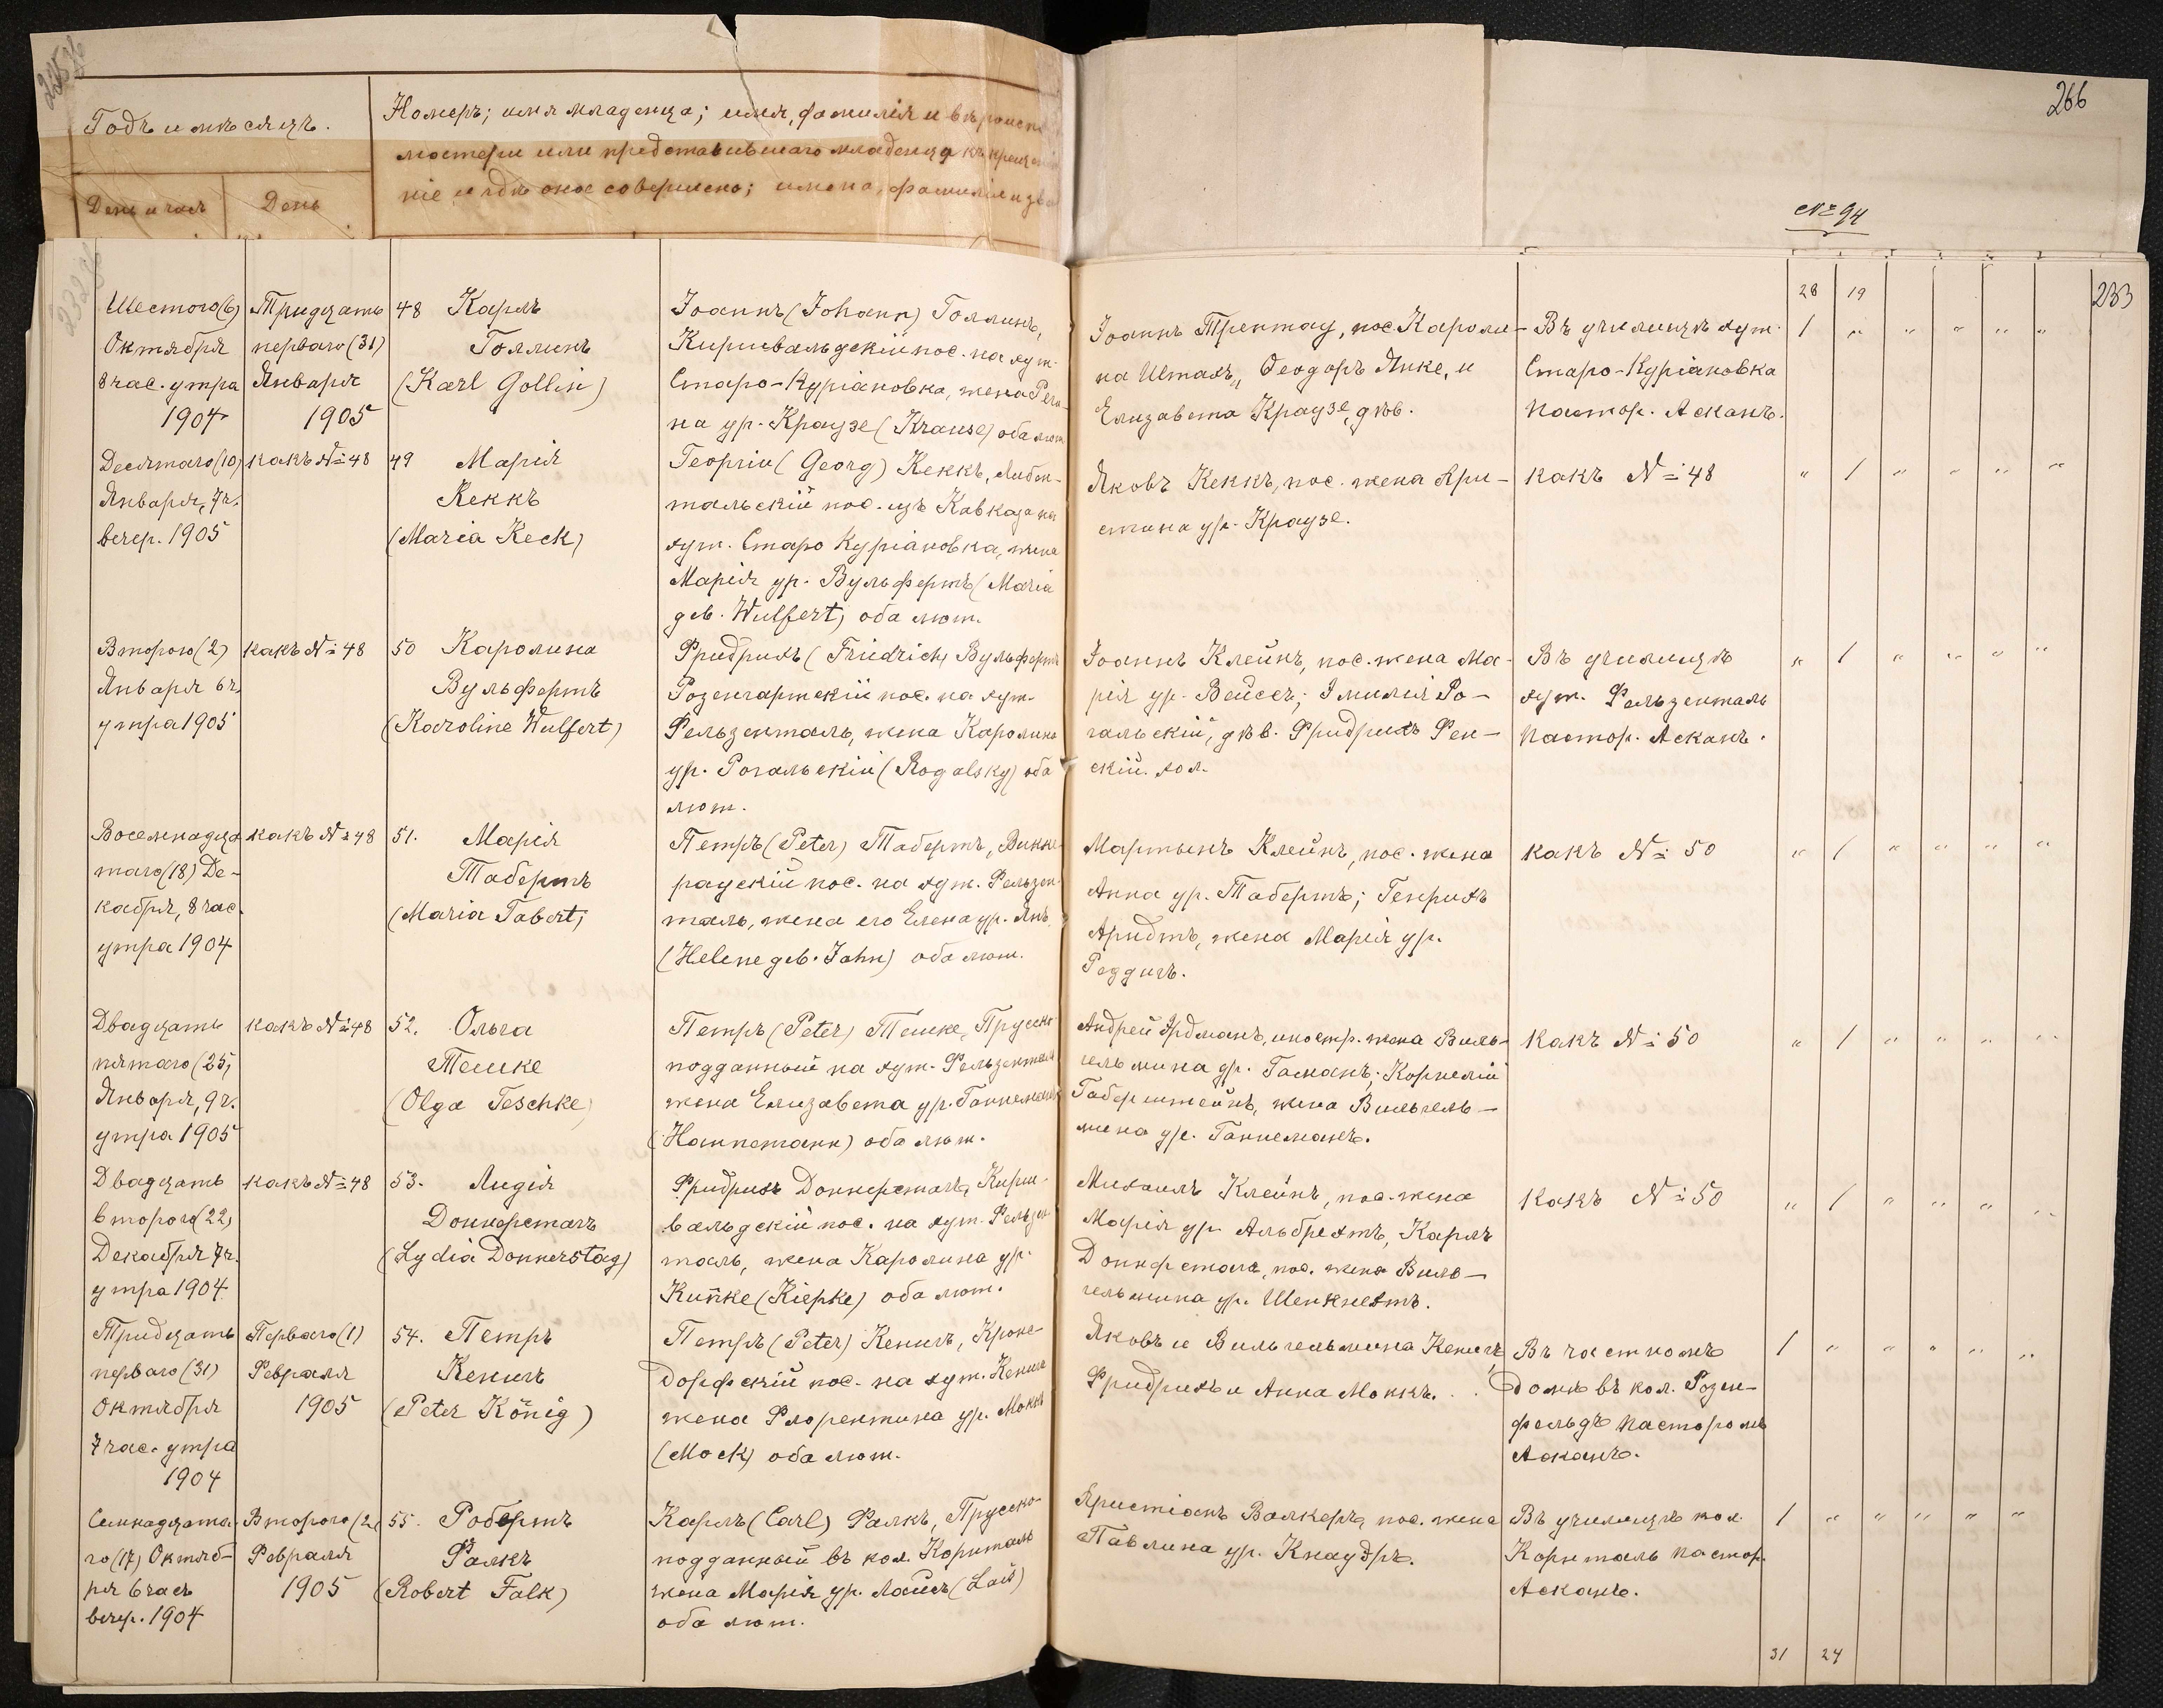 266
Годъ и мѣсяцъ.
Номеръ; имя младенца; имя, фамилія и
матери или представившаго младенца къ
ніе и гдѣ оное совершено; имена, фамиліи и
День и часъ
День
№ 94
233
28 19
Шестого (6)
Октября
8 час. утра
1904
Тридцать
перваго (31)
Января
1905
48 Карлъ
Голлинъ
(Karl Gollin)
Іоаннъ (Johann) Голлинъ,
Киршвальдскій пос. на хут.
Старо-Куріановка, жена Реги-
на ур. Краузе (Krause) оба лют.
Іоаннъ Трептау, пос. Кароли-
на Шталь, Феодоръ Янке, и
Елизавета Краузе, дѣв.
Въ училищѣ хут.
Старо-Куріановка
пастор. Асканъ.
1 " " " " "
Десятаго (10)
Января, 7 ч.
вечер. 1905
какъ № 48
49 Марія
Кеккъ
(Maria Keck)
Георгій (Georg) Кеккъ, Либен-
тальскій пос. изъ Кавказа на
хут. Старо Куріановка, жена
Марія ур. Вульфертъ (Maria
geb. Wulfert) оба лют.
Яковъ Кеккъ, пос. жена Хри-
стина ур. Краузе.
какъ № 48
" 1 " " " "
Второго (2)
Января 6 ч.
утра 1905
какъ № 48
50 Каролина
Вульфертъ
(Karoline Wulfert)
Фридрихъ (Friedrich) Вульфертъ
Розенгартскій пос. на хут.
Фельзенталь, жена Каролина
ур. Рогальскій (Rogalsky) оба
лют.
Іоаннъ Клейнъ, пос. жена Ма-
рія ур. Вейссъ; Эмилія Ро-
гальскій, дѣв. Фридрихъ Рен-
скій. хол.
Въ училищѣ
хут. Фельзенталь
пастор. Асканъ.
" 1 " " " "
Восемнадца-
таго (18) Де-
кабря, 8 час.
утра 1904
какъ № 48
51. Марія
Табертъ
(Maria Tabert)
Петръ (Peter) Табертъ, Викке-
раускій пос. на хут. Фельзен-
таль, жена его Елена ур. Янъ
(Helene geb. Jahn) оба лют.
Мартынъ Клейнъ, пос. жена
Анна ур. Табертъ; Генрихъ
Арндтъ, жена Марія ур.
Реддигъ.
какъ № 50
" 1 " " " "
Двадцать
пятаго (25)
Января, 9 ч.
утра 1905
какъ № 48
52. Ольга
Тешке
(Olga Teschke)
Петръ (Peter) Тешке, Прусско-
подданный на хут. Фельзенталь
жена Елизавета ур. Ганнеманъ
(Hannemann) оба лют.
Андрей Эрдманъ, иностр. жена Виль-
гельмина ур. Гаманъ; Корнелій
Габерштейнъ, жена Вильгель-
мина ур. Ганнеманъ.
какъ № 50
" 1 " " " "
Двадцать
второго (22)
Декабря 7 ч.
утра 1904
какъ № 48
53. Лидія
Доннерстагъ
(Lydia Donnerstag)
Фридрихъ Доннерстагъ, Кирш-
вальдскій пос. на хут. Фельзен-
таль, жена Каролина ур.
Кипке (Kiepke) оба лют.
Михаилъ Клейнъ, пос. жена
Марія ур. Альбрехтъ, Карлъ
Доннерстагъ, пос. жена Виль-
гельмина ур. Шенкнехтъ.
какъ № 50
" 1 " " " "
Тридцать
перваго (31)
Октября
7 час. утра
1904
Перваго (1)
Февраля
1905
54. Петръ
Кенигъ
(Peter König)
Петръ (Peter) Кенигъ, Кроне-
дорфскій пос. на хут. Кенигъ
жена Флорентина ур. Моккъ
(Mock) оба лют.
Яковъ и Вильгельмина Кенигъ,
Фридрихъ и Анна Моккъ.
Въ частномъ
домѣ въ кол. Розен-
фельдъ пасторомъ
Асканъ.
1 " " " " "
Семнадцата-
го (17) Октяб-
ря 6 час.
вечер. 1904
Второго (2)
Февраля
1905
55. Робертъ
Фалкъ
(Robert Falk)
Карлъ (Carl) Фалкъ, Прусско-
подданный въ кол. Корнталь
жена Марія ур. Лайсъ (Lais)
оба лют.
Христіанъ Валкеръ, пос. жена
Павлина ур. Кнаудръ.
Въ училищѣ кол.
Корнталь пастор.
Асканъ.
1 " " " " "
31 24